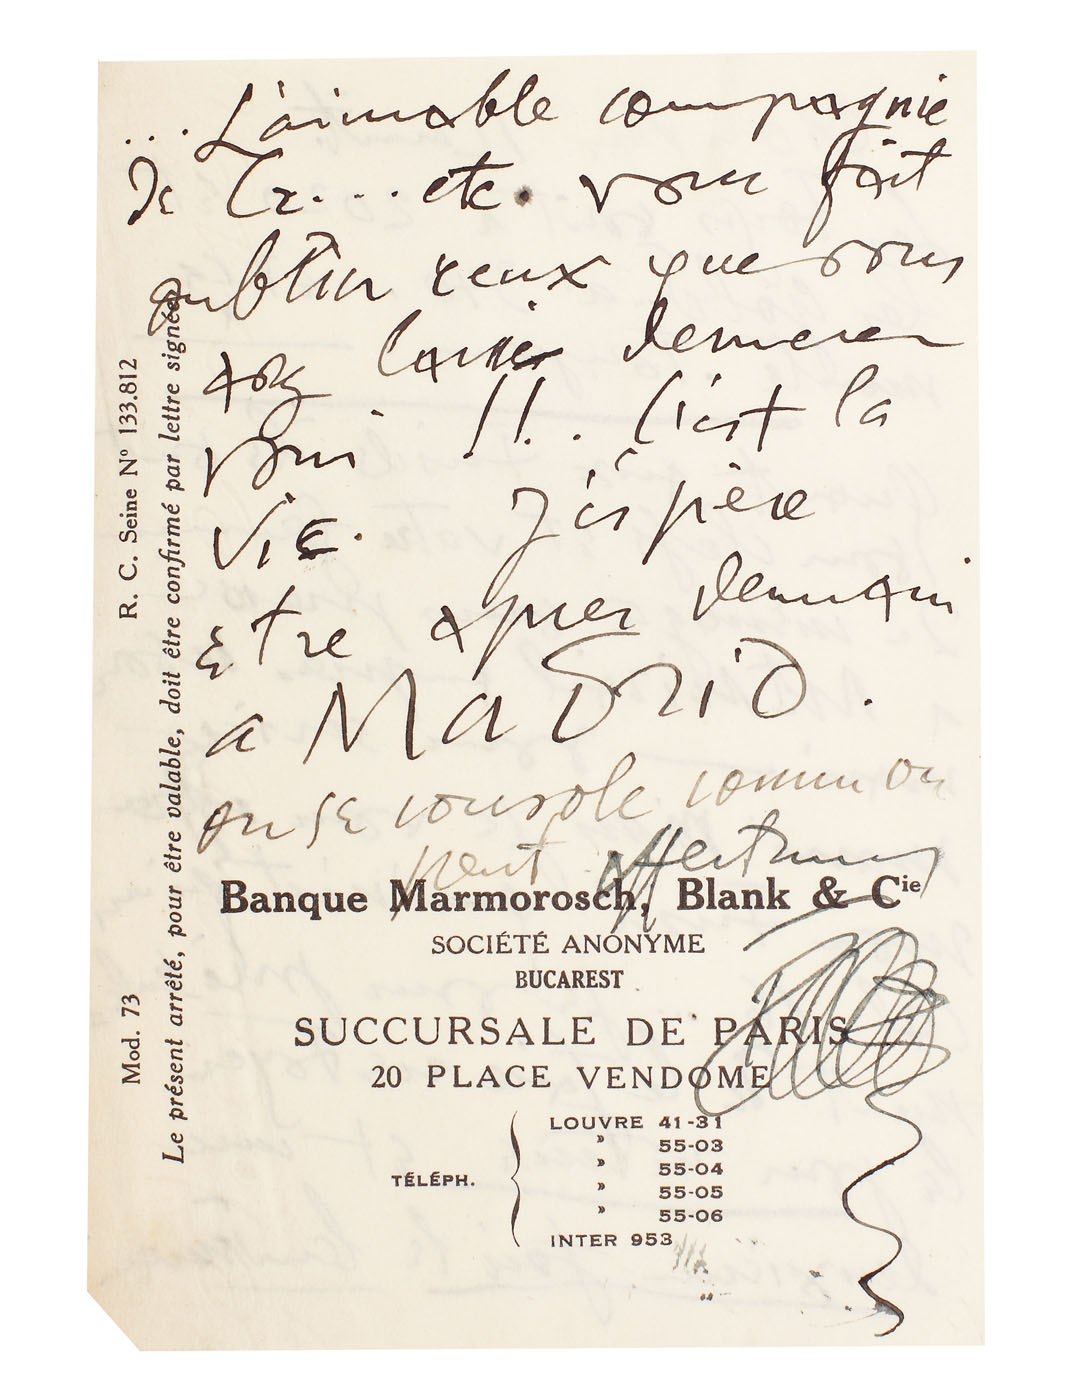 ... L'aimable compagnie
de Cz... etc. vous fait
oublier ceux que vous
avez laissé derrière
vous !!.. C'est la
Vie. J'espère
être apres demain
a Madrid.
on se console comme on
peut
Banque Marmorosch, Blank & Cie
SOCIÉTÉ ANONYME
BUCAREST
SUCCURSALE DE PARIS
20 PLACE VENDOME
TÉLÉPH.
LOUVRE 41-31
» 55-03
» 55-04
» 55-05
» 55-06
INTER 953
R. C. Seine Nº 133.812
Mod. 73
Le présent arrêté, pour être valable, doit être confirmé par lettre signée